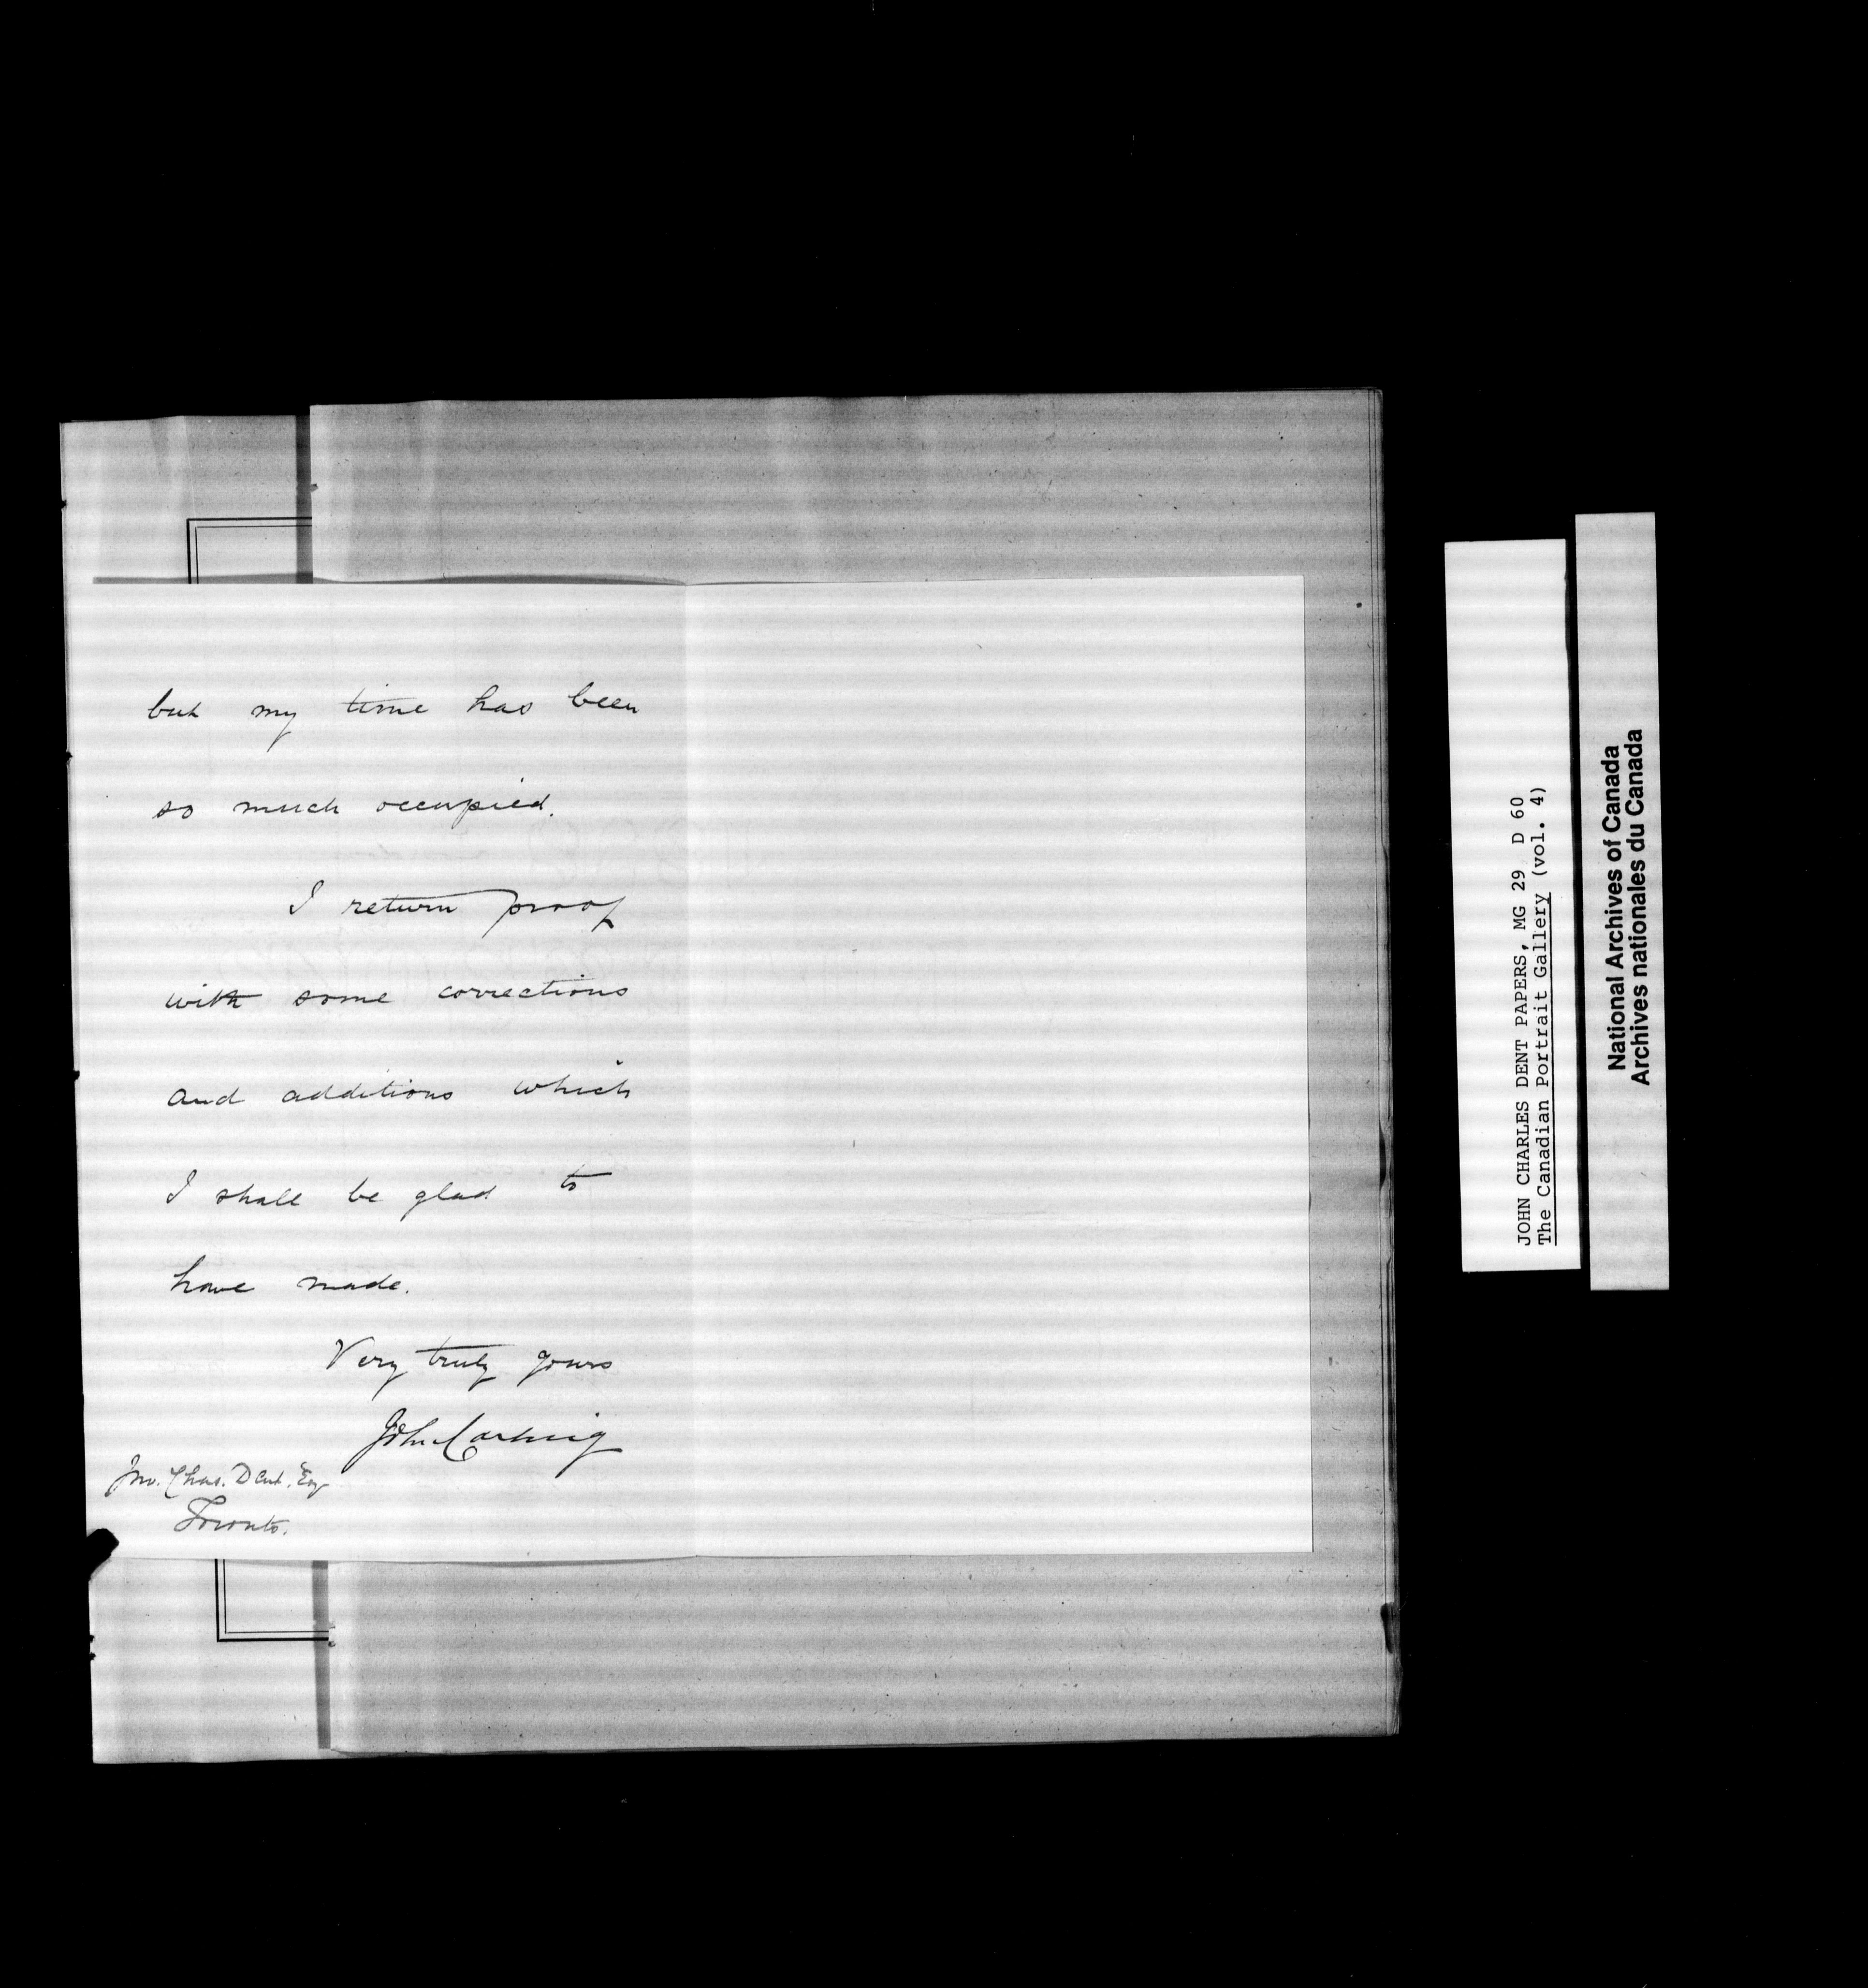 but my time has been
so much occupied.
I return proof
with some corrections
and additions which
I shall be glad to
have made.
Very truly yours
John Carling
Jno. Chas. Dent. Esq
Toronto.
JOHN CHARLES DENT PAPERS, MG 29 D 60
The Canadian Portrait Gallery (vol. 4)
National Archives of Canada
Archives nationales du Canada